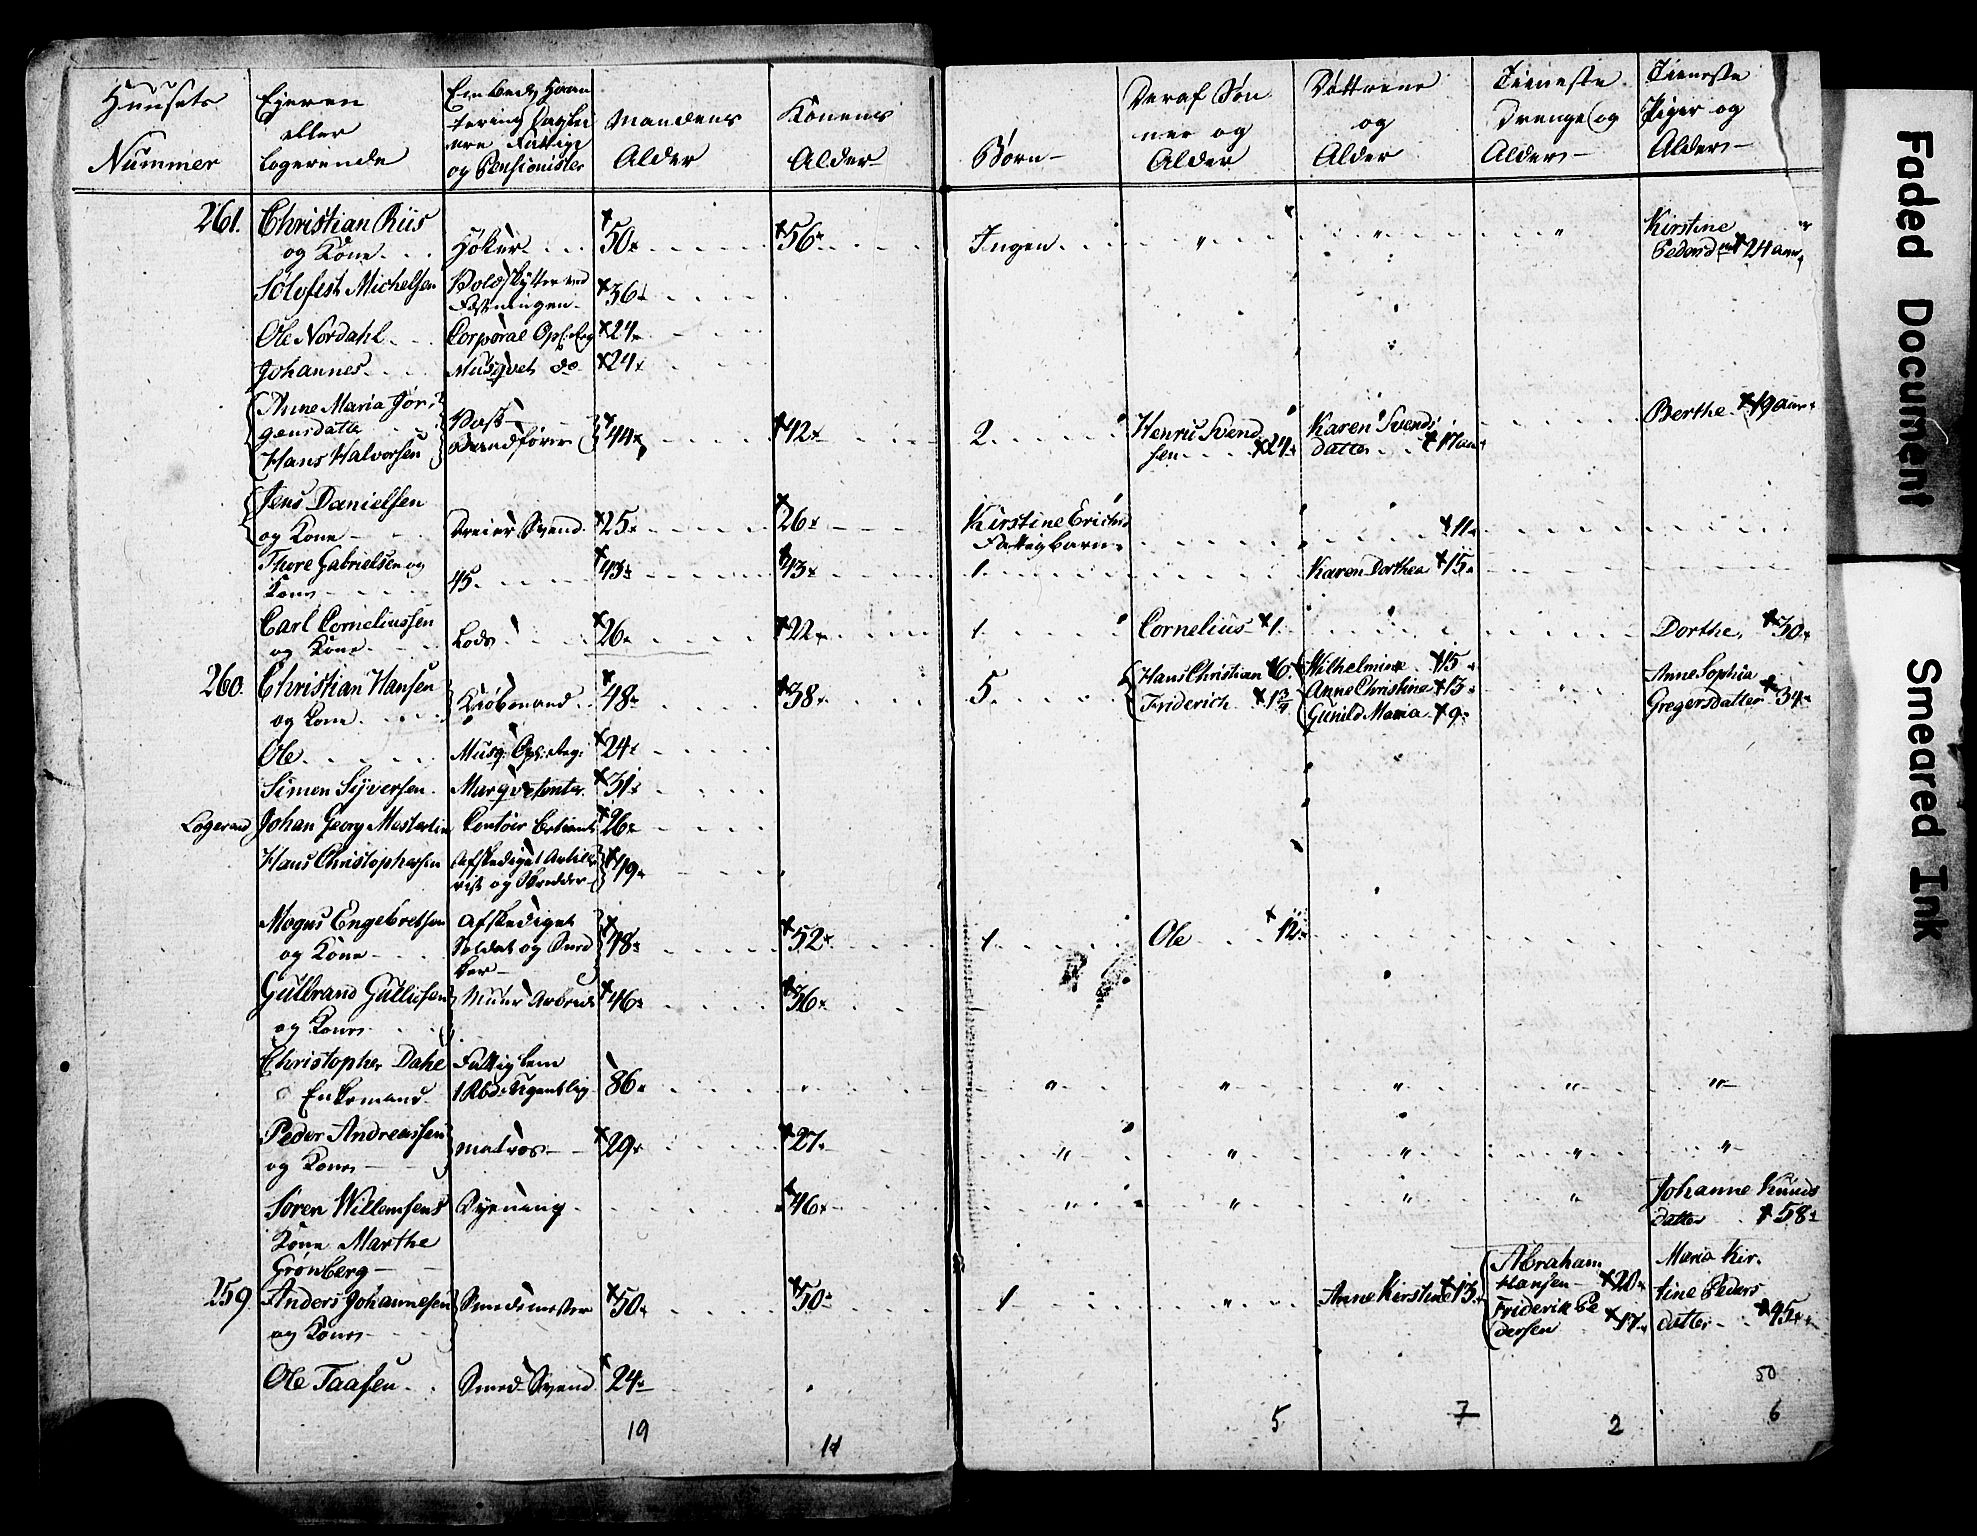 Huusets Nummer
Ejeren eller Logerende
Embeds Haandtering Dagleiere Fattige og Pensionister
Mandens Alder
Konens Alder
Børn
Deraf Sønner og Alder
Døttrene og Alder
Tieneste Drenge og Alder
Tieneste Piger og Alder
261. Christian Riis og Kone Høker 50 56 Ingen " " " Kirstine Pedersd 24 aar
Sølvfest Michelsen ved Fæstningen 36
Ole Nordahl Corporal Opl: Reg 24
Johannes Musqvet do 24
Anne Maria Jørgensdatter Hans Halvorsen Post 44 42 2 Henrik Svendsen 24 Karen Svendsdatter 17 aar Berthe 19 aar
Jens Danielsen og Kone Dreier Svend 25 26 Kirstine Erichsd Fattigbarn 11
Thore Gabrielsen og Kone 45 43 43 1 Karen Dorthea 15
Carl Corneliussen og Kone Lods 26 22 1 Cornelius 1 Dorthe 30
260. Christian Hansen og Kone Kiøbmand 48 38 5 Hans Christian 6 Friderich 1¾ Wilhelmine 15 Anne Christine 13 Gunild Maria 9 " Anne Sophia Gregersdatter 34
Ole Musq: Opl: Reg: 24
Simen Syversen Marqvetenter 31
Logerend Johan Georg Contoir Betient 26
Hans Christophersen Afskediget Artillerist og Skredder 49
Mogns Engebretsen og Kone Afskediget Soldat og Snedker 48 52 1 Ole 12
Gulbrand Gullicsen og Kone Muur Arbeide 46 36
Christopher Dahl Enkemand Fattiglem 1 Rbd: Ugentlig 86 " " " " " "
Peder Andreassen og Kone Matros 29 27 " " " " "
Søren Willemsens Kone Marthe Grønberg Syening 46 " " " " Johanne Knudsdatter 58
259 Anders Johannesen og Kone Smedemester 50 50 1 " Anne Kirstine 13 Abraham Hansen 20 Friderik Pedersen 17 Maria Kirstine Pedersdatter 45
Ole Taasen Smed Svend 24
50
19 11 5 7 2 6
Faded Document
Smeared Ink